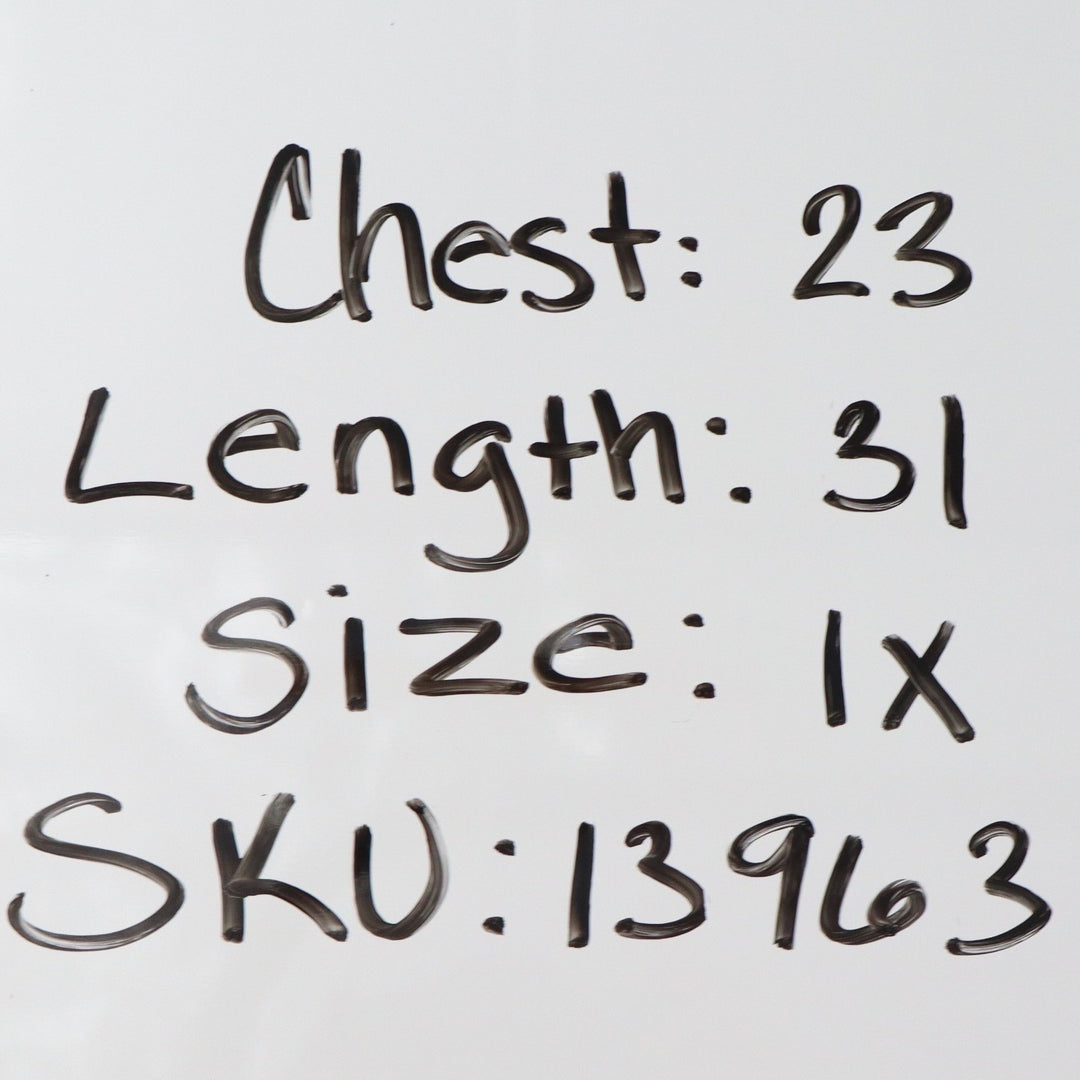 Chest: 23
Length: 31
Size: 1X
SKU: 13963